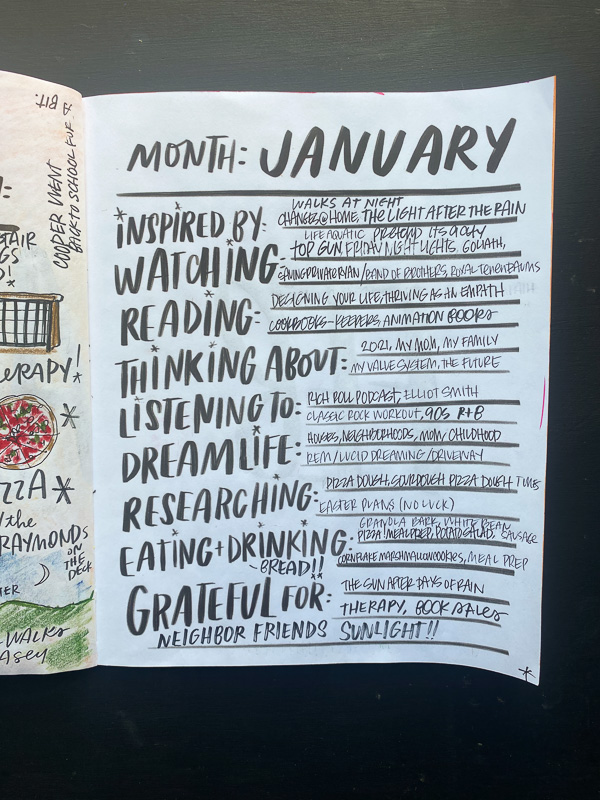 A BIT.
COOPER WENT
BACK TO SCHOOL FUE
GS
ERAPY!
ZZA
/the
RAYMONDS
ON
THE
DECK
WALKS
ASEY
MONTH: JANUARY
INSPIRED BY:
WALKS AT NIGHT
CHANGES@HOME, THE LIGHT AFTER THE RAIN
WATCHING:
LIFE AQUATIC PRETEND ITS A CITY
TOP GUN FRIDAY NIGHT LIGHTS, GOLIATH,
SAVING PRIVATE RYAN/BAND OF BROTHERS, ROYAL TENENBAUMS
READING:
DESIGNING YOUR LIFE, THRIVING AS AN EMPATH
COOKBOOKS-KEEPERS, ANIMATION BOOKS
THINKING ABOUT:
2021, MY MOM, MY FAMILY
MY VALUE SYSTEM, THE FUTURE
LISTENING TO:
RICH ROLL PODCAST, ELLIOT SMITH
CLASSIC ROCK WORKOUT, 90S R+B
DREAM LIFE:
HOUSES, NEIGHBORHOODS, MOM, CHILDHOOD
REM/LUCID DREAMING/DRIVEWAY
RESEARCHING:
PIZZA DOUGH, SOURDOUGH PIZZA DOUGH TIMES
EASTER PLANS (NO LUCK)
EATING+DRINKING:
GRANOLA BARK, WHITE BEAN
PIZZA! MEAL PREP, POTATO SALAD, SAUSAGE
CORNFLAKE MARSHMALLOW COOKIES, MEAL PREP
-BREAD!!
GRATEFUL FOR:
THE SUN AFTER DAYS OF RAIN
THERAPY, BOOK SALES
NEIGHBOR FRIENDS SUNLIGHT!!